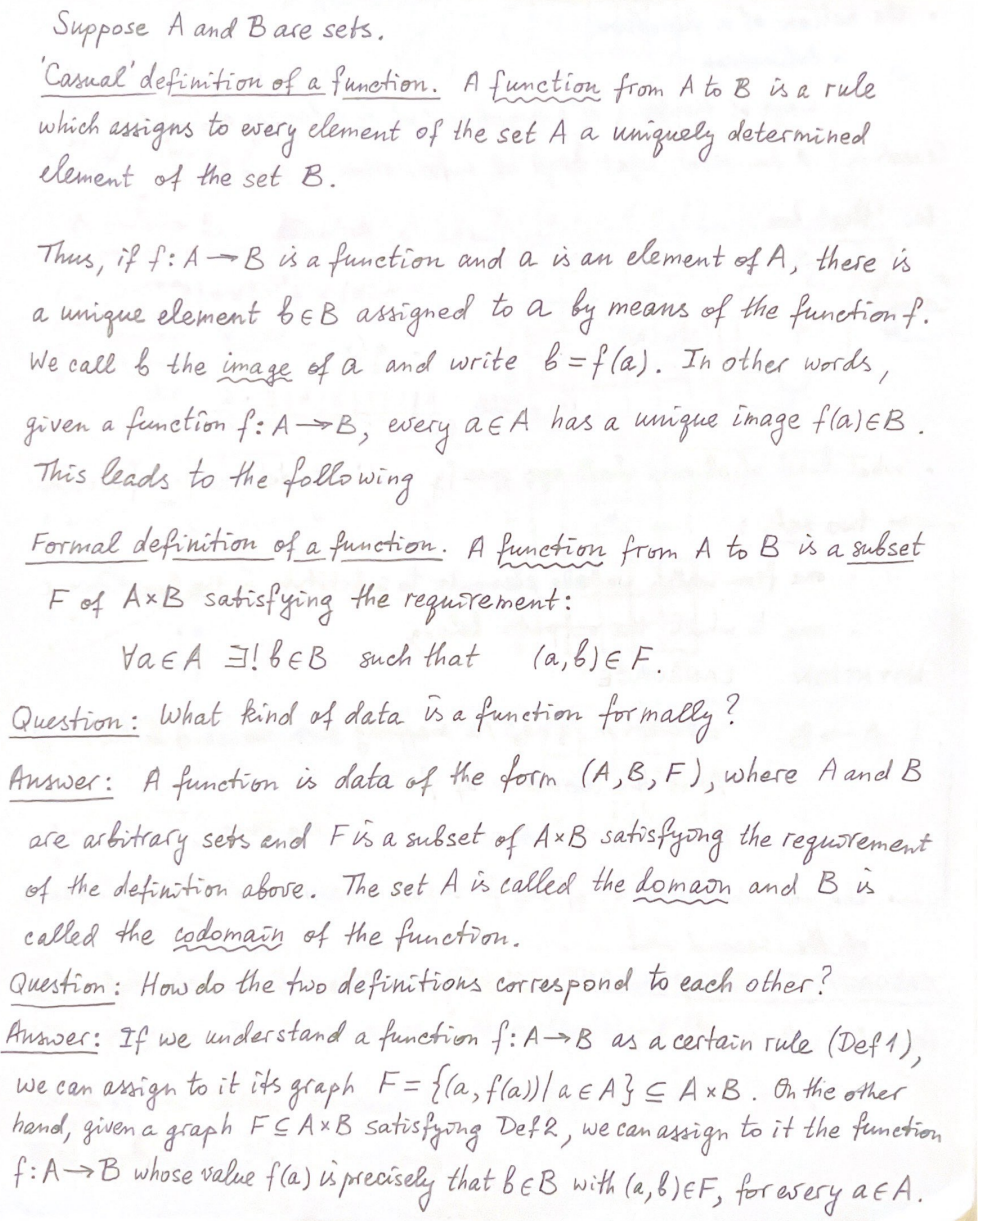 Suppose A and B are sets.
'Casual' definition of a function. A function from A to B is a rule
which assigns to every element of the set A a uniquely determined
element of the set B.
Thus, if f: A → B is a function and a is an element of A, there is
a unique element b ∈ B assigned to a by means of the function f.
We call b the image of a and write b = f(a). In other words,
given a function f: A → B, every a ∈ A has a unique image f(a) ∈ B.
This leads to the following
Formal definition of a function. A function from A to B is a subset
F of A × B satisfying the requirement:
∀a ∈ A ∃! b ∈ B such that (a, b) ∈ F.
Question: What kind of data is a function formally?
Answer: A function is data of the form (A, B, F), where A and B
are arbitrary sets and F is a subset of A × B satisfying the requirement
of the definition above. The set A is called the domain and B is
called the codomain of the function.
Question: How do the two definitions correspond to each other?
Answer: If we understand a function f: A → B as a certain rule (Def 1),
we can assign to it its graph F = {(a, f(a)) | a ∈ A} ⊆ A × B. On the other
hand, given a graph F ⊆ A × B satisfying Def 2, we can assign to it the function
f: A → B whose value f(a) is precisely that b ∈ B with (a, b) ∈ F, for every a ∈ A.